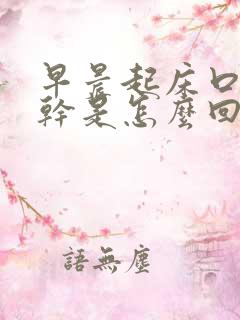 早晨起床口
幹是怎麼回
語無塵